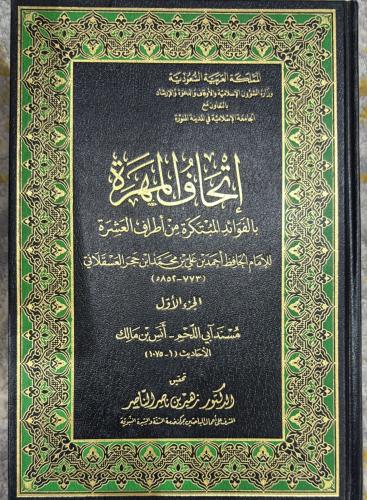 المملكة العربية السعودية
وزارة الشؤون الإسلامية والأوقاف والدعوة والإرشاد
بالتعاون مع
الجامعة الإسلامية في المدينة المنورة
إتحاف المهرة
بالفوائد المبتكرة من أطراف العشرة
للإمام الحافظ أحمد بن علي بن محمد ابن حجر العسقلاني
(٧٧٣-٨٥٢ھ)
الجزء الأول
مسند آبي اللحم - أنس بن مالك
الأحاديث (١-١٠٧٥)
تحقيق
الدكتور زهير بن ناصر الناصر
المشرف على أعمال الباحثين بمركز خدمة السنة والسيرة النبوية